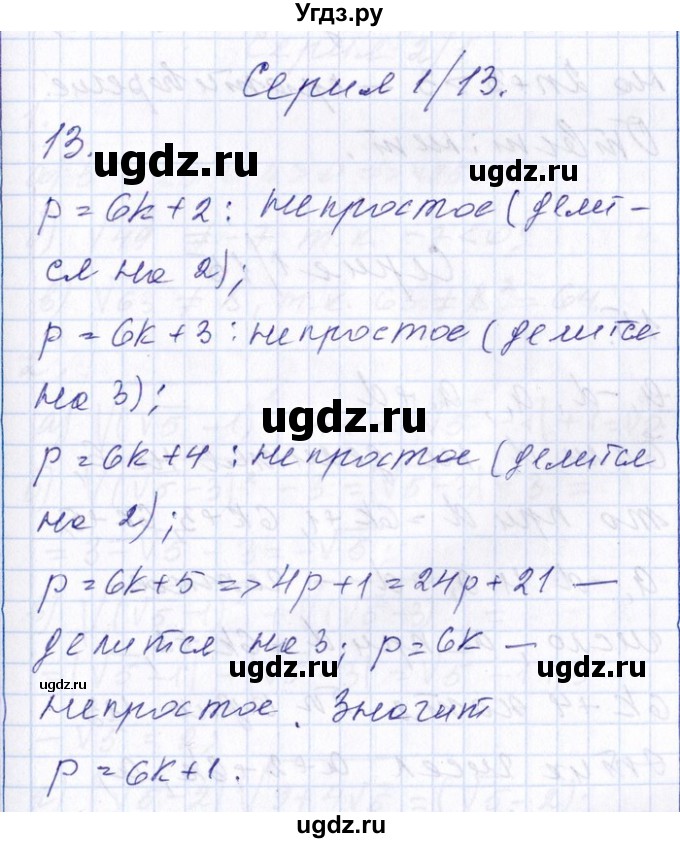 Угдз.ру
Серия 1/13.
13.
ugdz.ru
p = 6k+2 : непростое (делит-
ся на 2);
p = 6k+3 : непростое (делится
ugdz.ru
на 3);
ugdz.ru
p = 6k+4 : непростое (делится
на 2);
p = 6k+5 => 4p+1 = 24p+21 —
делится на 3; p = 6k —
ugdz.ru
ugdz.ru
ugdz.ru
непростое. Значит
p = 6k+1.
ugdz.ru
ugdz.ru